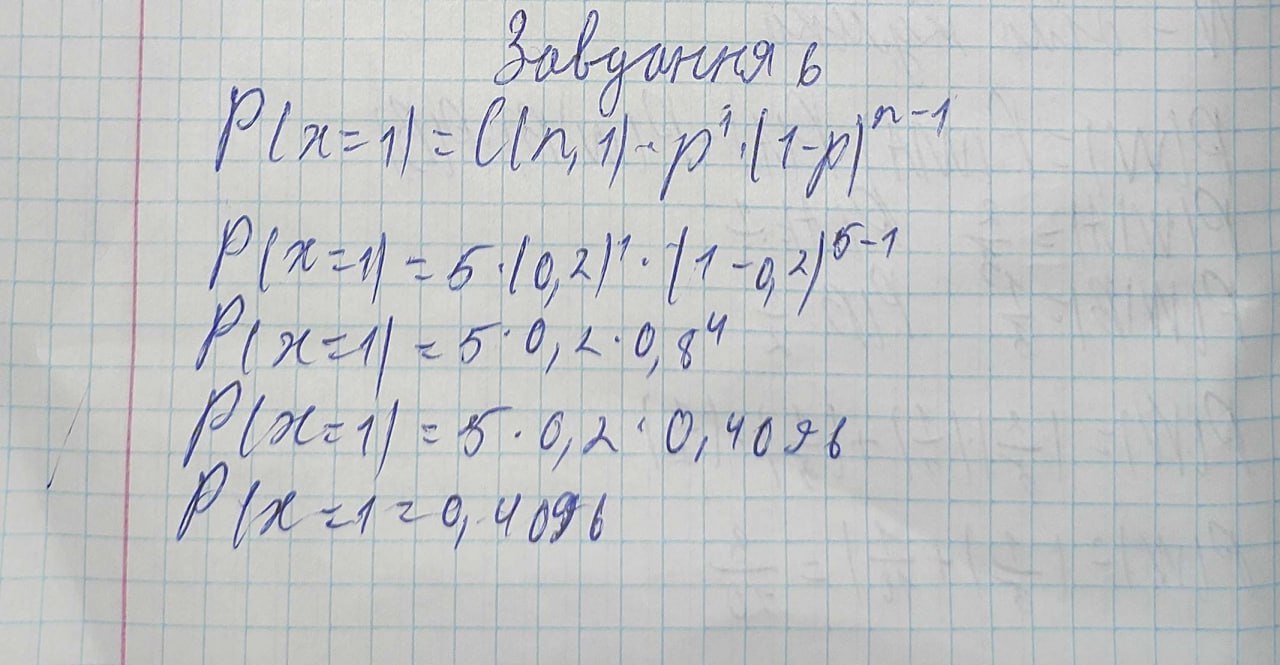 Завдання 6
P(x=1) = C(n,1) · p¹ · (1-p)ⁿ⁻¹
P(x=1) = 5 · (0,2)¹ · (1-0,2)⁵⁻¹
P(x=1) = 5 · 0,2 · 0,8⁴
P(x=1) = 5 · 0,2 · 0,4096
P(x=1 = 0,4096